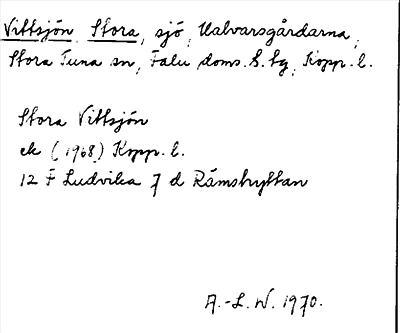 Vittsjön, Stora, sjö, Halvarsgårdarna,
Stora Tuna sn, Falu doms. S. tg, Kopp. l.
Stora Vittsjön
ek (1968) Kopp. l.
12 F Ludvika 7 d Rämshyttan
A.-L. W. 1970.